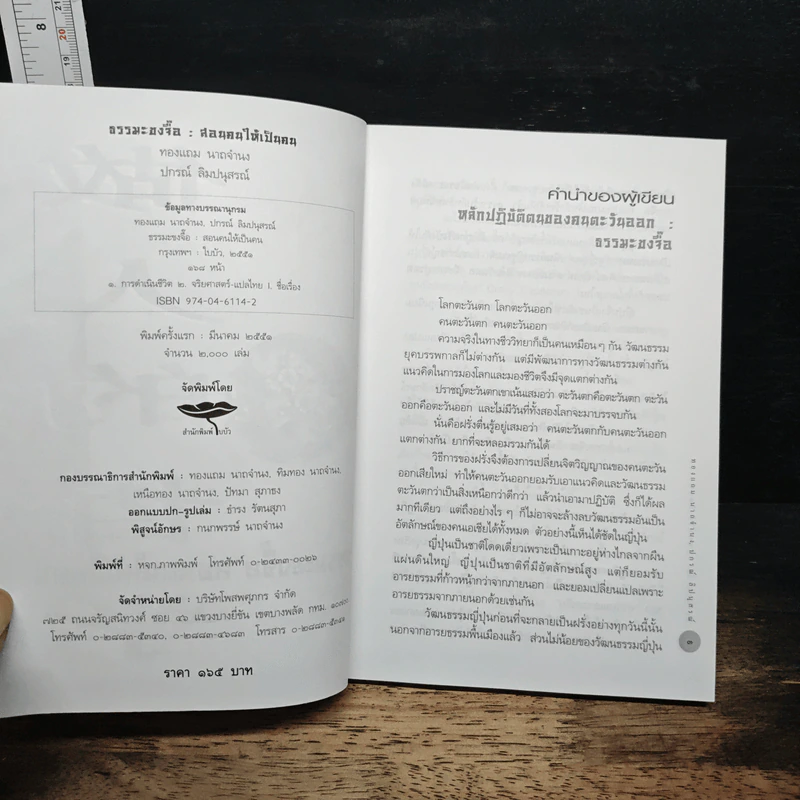 8
21
20
19
18
ธรรมะขงจื๊อ : สอนคนให้เป็นคน
ทองแถม นาถจำนง
ปกรณ์ ลิมปนุสรณ์
ข้อมูลทางบรรณานุกรม
ทองแถม นาถจำนง, ปกรณ์ ลิมปนุสรณ์
ธรรมะขงจื๊อ : สอนคนให้เป็นคน
กรุงเทพฯ : ใบบัว, ๒๕๕๑
๑๖๘ หน้า
๑. การดำเนินชีวิต ๒. จริยศาสตร์-แปลไทย I. ชื่อเรื่อง
ISBN 974-04-6114-2
พิมพ์ครั้งแรก : มีนาคม ๒๕๕๑
จำนวน ๒,๐๐๐ เล่ม
จัดพิมพ์โดย
สำนักพิมพ์ ใบบัว
กองบรรณาธิการสำนักพิมพ์ : ทองแถม นาถจำนง, ทิมทอง นาถจำนง,
เหนือทอง นาถจำนง, ปัทมา สุภาธง
ออกแบบปก-รูปเล่ม : ธำรง รัตนสุภา
พิสูจน์อักษร : กนกพรรษ์ นาถจำนง
พิมพ์ที่ : หจก.ภาพพิมพ์ โทรศัพท์ ๐-๒๔๓๓-๐๐๒๖
จัดจำหน่ายโดย : บริษัทโพสพศุภกร จำกัด
๗๒๕ ถนนจรัญสนิทวงศ์ ซอย ๔๖ แขวงบางยี่ขัน เขตบางพลัด กทม. ๑๐๗๐๐
โทรศัพท์ ๐-๒๘๘๓-๕๓๔๐, ๐-๒๘๘๓-๔๖๘๓ โทรสาร ๐-๒๘๘๓-๕๓๔๑
ราคา ๑๖๕ บาท
คำนำของผู้เขียน
หลักปฏิบัติตนของคนตะวันออก :
ธรรมะขงจื๊อ
โลกตะวันตก โลกตะวันออก
คนตะวันตก คนตะวันออก
ความจริงในทางชีววิทยาก็เป็นคนเหมือนๆ กัน วัฒนธรรม
ยุคบรรพกาลก็ไม่ต่างกัน แต่มีพัฒนาการทางวัฒนธรรมต่างกัน
แนวคิดในการมองโลกและมองชีวิตจึงมีจุดแตกต่างกัน
ปราชญ์ตะวันตกเขาเน้นเสมอว่า ตะวันตกคือตะวันตก ตะวัน
ออกคือตะวันออก และไม่มีวันที่ทั้งสองโลกจะมาบรรจบกัน
นั่นคือฝรั่งตื่นรู้อยู่เสมอว่า คนตะวันตกกับคนตะวันออก
แตกต่างกัน ยากที่จะหลอมรวมกันได้
วิธีการของฝรั่งจึงต้องการเปลี่ยนจิตวิญญาณของคนตะวัน
ออกเสียใหม่ ทำให้คนตะวันออกยอมรับเอาแนวคิดและวัฒนธรรม
ตะวันตกว่าเป็นสิ่งเหนือกว่าดีกว่า แล้วนำเอามาปฏิบัติ ซึ่งก็ได้ผล
มากทีเดียว แต่ถึงอย่างไร ๆ ก็ไม่อาจจะล้างลบวัฒนธรรมอันเป็น
อัตลักษณ์ของคนเอเชียได้ทั้งหมด ตัวอย่างนี้เห็นได้ชัดในญี่ปุ่น
ญี่ปุ่นเป็นชาติโดดเดี่ยวเพราะเป็นเกาะอยู่ห่างไกลจากผืน
แผ่นดินใหญ่ ญี่ปุ่นเป็นชาติที่มีอัตลักษณ์สูง แต่ก็ยอมรับ
อารยธรรมที่ก้าวหน้ากว่าจากภายนอก และยอมเปลี่ยนแปลงเพราะ
อารยธรรมจากภายนอกด้วยเช่นกัน
วัฒนธรรมญี่ปุ่นก่อนที่จะกลายเป็นฝรั่งอย่างทุกวันนี้นั้น
นอกจากอารยธรรมพื้นเมืองแล้ว ส่วนไม่น้อยของวัฒนธรรมญี่ปุ่น
ทองแถม นาถจำนง, ปกรณ์ ลิมปนุสรณ์